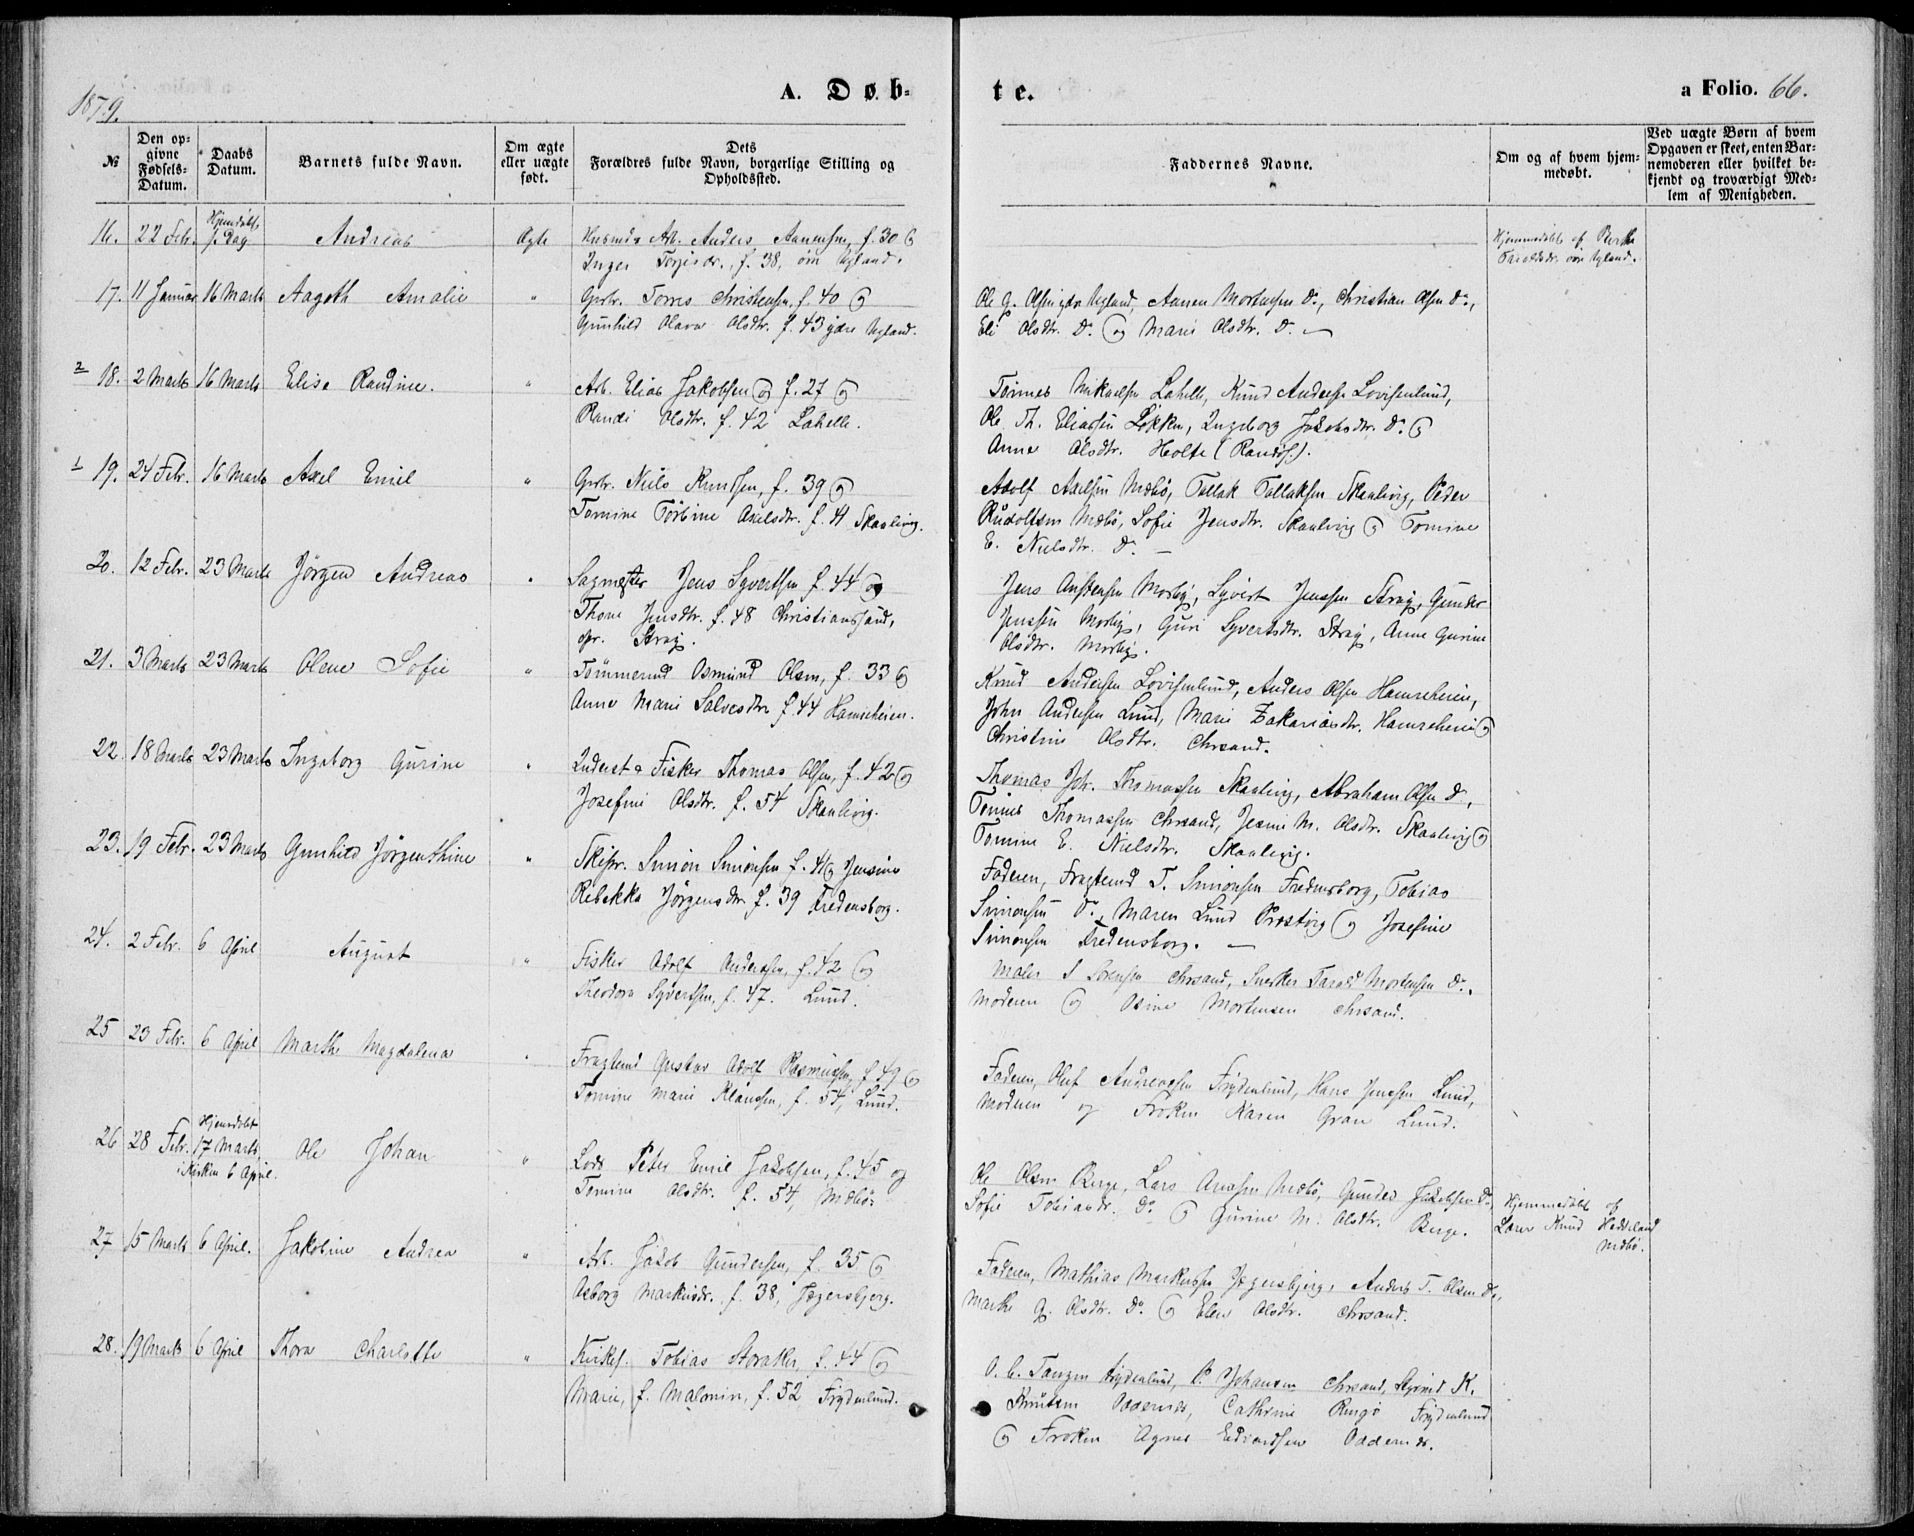 1879.
A. Døb-
te.
a Folio. 66.
№
Den op-
givne
Fødsels-
Datum.
Daabs
Datum.
Barnets fulde Navn.
Om ægte
eller uægte
født.
Dets
Forældres fulde Navn, borgerlige Stilling og
Opholdssted.
Faddernes Navne.
Om og af hvem hjem-
medøbt.
Ved uægte Børn af hvem
Opgaven er skeet, enten Bar-
nemoderen eller hvilket be-
kjendt og troværdigt Med-
lem af Menigheden.
16. 22 Febr. Hjemdøbt s. Dag Andreas Ægte Husmd & Arb. Anders Aanensen, f. 30 og
Inger Torjesdr., f. 38, Ugland.
Hjemmedøbt af Berthe
Ugland.
17. 11 Januar 16 Marts Aagoth Amalie " Gbr. Torres Christensen, f. 40 og
Gunhild Olava Olsdtr. f. 43 ydre Ugland.
Ole G. Olsen ydre Ugland, Aanen Mortensen Do, Christian Olsen Do,
Eli Olsdtr. Do og Marie Olsdtr. Do —
2 18. 2 Marts 16 Marts Elise Randine. " Arb. Elias Jakobsen og f. 27 og
Randi Olsdtr. f. 42 Lahelle.
Tønnes Mikaelsen Lahelle, Knud Andersen Lovisenlund,
Ole Th. Eliassen Løkken, Ingeborg Jakobsdtr. Do og
Anne Olsdtr. Holte (Randøs.).
1 19. 24 Febr. 16 Marts Axel Emil " Gbr. Niels Knudsen, f. 39 og
Tomine Torbine Axelsdtr. f. 41 Skaalevig.
Adolf Axelsen Mæbø, Tallak Tallaksen Skaalevig, Peder
Rudolfsen Mæbø, Sofie Jensdtr. Skaalevig og Tomine
E. Nielsdtr. Do —
20. 12 Febr. 23 Marts Jörgen Andreas " Sagmester Jens Syvertsen f. 44 og
Thone Jensdtr. f. 48 Christianssand,
opr. Straj.
Jens Austensen Mosby, Syvert Jenssen Straj, Gunder
Jenssen Mosby, Guri Syvertsdtr. Straj, Anne Gurine
Olsdtr. Mosby.
21. 3 Marts 23 Marts Olene Sofie " Tømmermd Osmund Olsen, f. 33 og
Anne Marie Salvesdtr f. 44 Hamreheien.
Knud Andersen Lovisenlund, Anders Olsen Hamreheien,
John Andersen Lund, Marie Zakariasdtr. Hamreheien og
Christine Olsdtr. Chrsand.
22. 18 Marts 23 Marts Ingeborg Gurine " Inderst & Fisker Thomas Olsen, f. 42 og
Josefine Olsdtr. f. 54 Skaalevig.
Thomas Joh. Thomassen Skaalevig, Abraham Olsen Do,
Tønnes Thomassen Chrsand, Jensine M. Olsdtr. Skaalevig og
Tomine E. Nielsdtr. Skaalevig.
23. 19 Febr. 23 Marts Gunhild Jörgenthine " Skipr. Simon Simonsen f. 41 og Jensine
Rebekka Jörgensdtr f. 39 Fredensborg.
Faderen, Fragtemd T. Simonsen Fredensborg, Tobias
Simonsen Do, Maren Lund Prestvig og Josefine
Simonsen Fredensborg. —
24. 2 Febr. 6 April August " Fisker Adolf Anderssen, f. 42 og
Theodora Syvertsen, f. 47. Lund.
Maler S Sørensen Chrsand, Snerker Tarald Mortensen Do.
Moderen og Osine Mortensen Chrsand.
25 23 Febr. 6 April Marthe Magdalena " Fragtemd Gustav Adolf Rasmussen, f. 49 og
Tomine Marie Klaussen, f. 54, Lund.
Faderen, Oluf Andreassen Frydenlund, Hans Jenssen Lund,
Moderen og Frøken Karen Gran Lund.
26 28 Febr. Hjemdøbt 17 Marts, i Kirken 6 April. Ole Johan " Lods Peter Emil Jakobsen, f. 45 og
Tomine Olsdtr. f. 54, Mæbø.
Ole Olsen Berge, Lars Mæbø, Gunder Jakobsen Do.
Sofie Tobiasdr. Do og Gurine M. Olsdtr. Berge.
Hjemmedøbt af
Lærer Knud Hodteland
Mæbø.
27 15 Marts 6 April. Jakobine Andrea " Arb. Jakob Gundersen, f. 35 og
Asborg Markusdr. f. 38, Jegersbjerg.
Faderen, Mathias Markussen Jegersbjerg, Anders T. Olsen Do,
Marthe G. Olsdtr. Do og Elen Olsdtr. Chrsand.
28. 19 Marts 6 April Thora Charlotte " Kirkes. Tobias Storaker, f. 44 og
Marie, f. Malonin, f. 52 Frydenlund.
O. C. Tangen Frydenlund, P. Johansen Chrsand, K.
Knutsen Oddernes, Cathrine Ringø Frydenlund
og Frøken Agnes Edvardsen Oddernes.